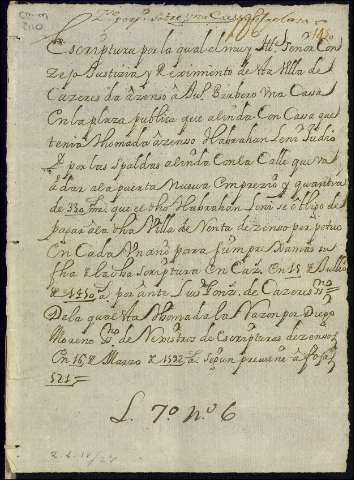 Escriptura por la qual el muy Itt. Señor Con
zejo Justizia y Reximiento de sta Villa de
Cazeres da àzenso â Barbero vna Casa
En la plaza publica que alinda Con Casa que
tenia thomada âzenso Habrahan Leui Judio
Y por las spaldas alinda Con la Calle que va
â dar ala puerta Nueua En prezio y quantia
de 330 mrs. que el dho Habrahan Leui se obligo de
pagar â la dha Villa de Renta de zenso perpetuo
En Cada Vn año para siempre Jamas su
fha de la dha Scriptura En Caz. En 18 de Jullio
de por ante Luis Gonz. de Cazeres
De la qual sta thomada la Razon por Diego
Moreno de Rexistros de Escripturas de zensos
En 16 de Marzo de segun preuiene â fojas
521
L. 7º nº 6